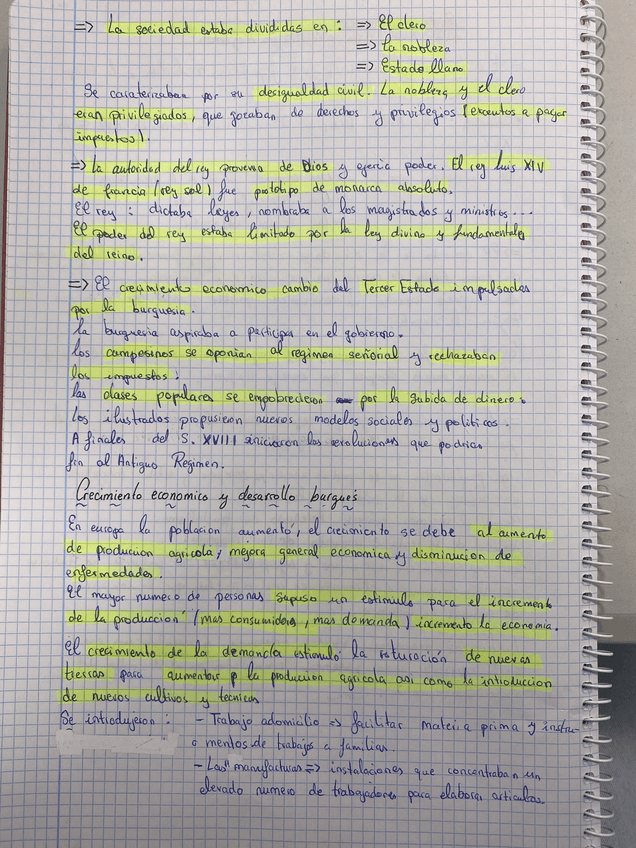 => La sociedad estaba divididas en : => El clero
=> La nobleza
=> Estado llano
Se caraterizaban por su desigualdad civil. La nobleza y el clero
eran privilegiados, que gozaban de derechos y privilegios (exentos a pagar
impuestos).
=> La autoridad del rey provenia de Dios y ejercia poder. El rey Luis XIV
de francia (rey sol) fue prototipo de monarca absoluto.
El rey : dictaba leyes, nombraba a los magistrados y ministros...
El poder del rey estaba limitado por la ley divina y fundamentales
del reino.
=> El crecimiento economico cambio del Tercer Estado impulsadas
por la burguesia.
la burguesia aspiraba a participar en el gobierno.
los campesinos se oponian al regimen señorial y rechazaban
los impuestos.
las clases populares se empobrecieron por la subida de dinero.
Los ilustrados propusieron nuevos modelos sociales y politicos.
A finales del S. XVIII iniciaron las revoluciones que podria
fin al Antiguo Regimen.
Crecimiento economico y desarrollo burgués
En europa la poblacion aumentó, el crecimiento se debe al aumento
de producion agricola, mejora general economica y disminucion de
enfermedades.
El mayor numero de personas supuso un estimulo para el incremento
de la producción (mas consumidores, mas demanda) incremento la economia.
El crecimiento de la demancia estimuló la roturación de nuevas
tierras para aumentar p la producion agricola asi como la introducion
de nuevos cultivos y tecnicas
Se introdujeron : - Trabajo adomicilio => facilitar materia prima y instru-
mentos de trabajos a familias.
- Las manufacturas => instalaciones que concentraban un
elevado numero de trabajadores para elaborar articulos